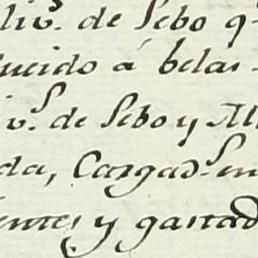 liv.s de Sebo q.
ucido á belas
iv.s de Sebo y
da, Cargad.s en
entes y gastad